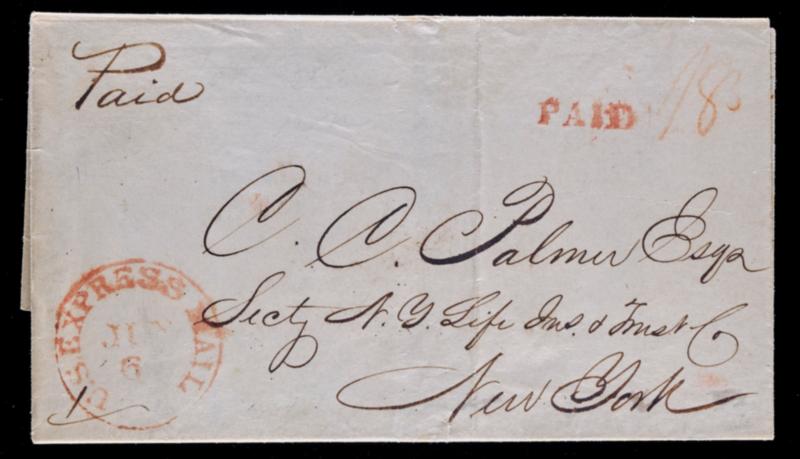 Paid
PAID
C. C. Palmer Esqr
Secty N. Y. Life Ins. & Trust Co
New York
U.S. EXPRESS MAIL
JUN
6